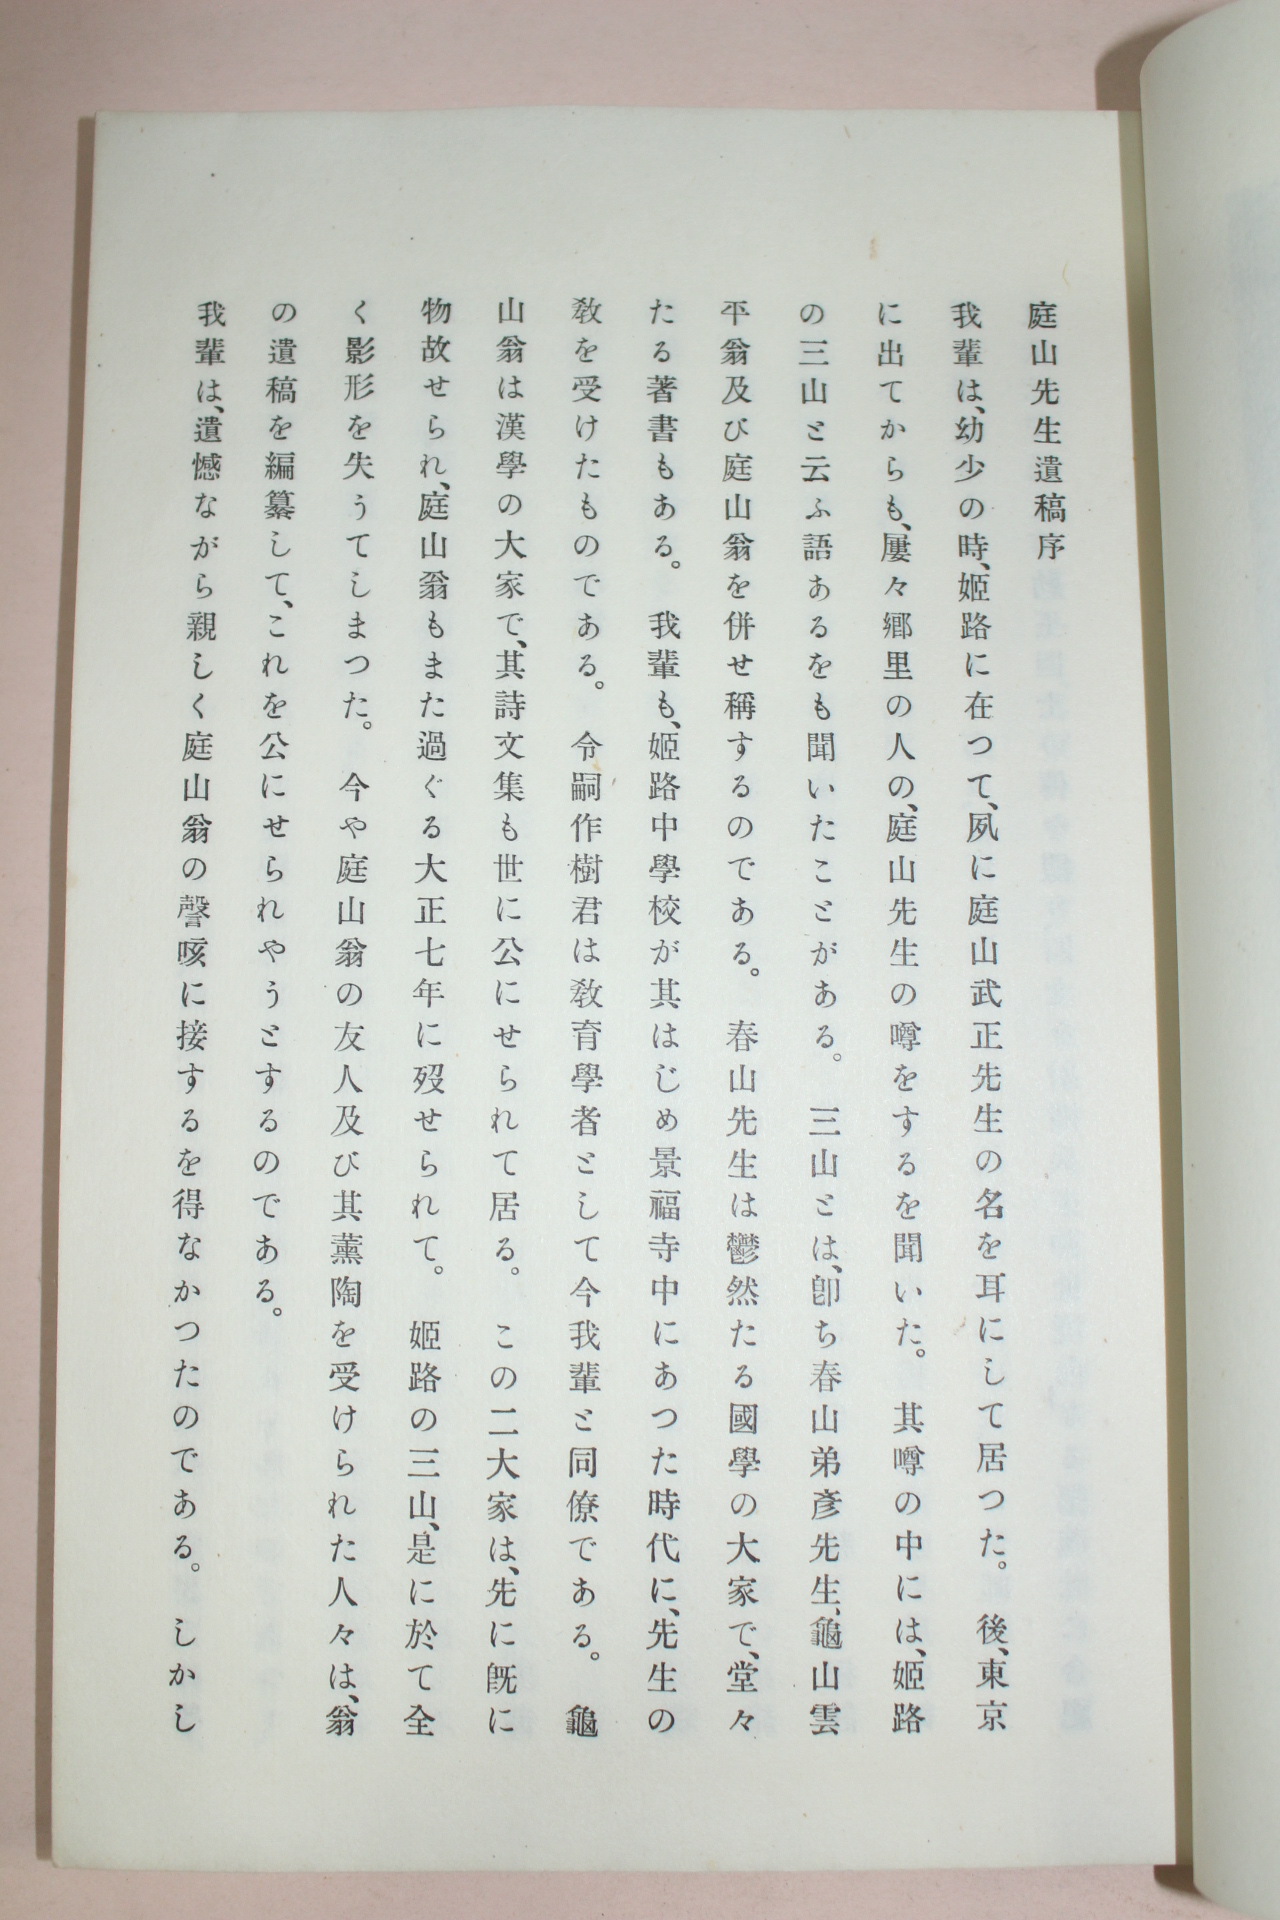 庭山先生遺稿序
我輩は、幼少の時、姫路に在つて、夙に庭山武正先生の名を耳にして居つた。後、東京
に出てからも、屢々鄕里の人の、庭山先生の噂をするを聞いた。其噂の中には、姫路
の三山と云ふ語あるをも聞いたことがある。三山とは、卽ち春山弟彥先生、龜山雲
平翁及び庭山翁を併せ稱するのである。春山先生は鬱然たる國學の大家で、堂々
たる著書もある。我輩も、姫路中學校が其はじめ景福寺中にあつた時代に、先生の
敎を受けたものである。令嗣作樹君は敎育學者として今我輩と同僚である。龜
山翁は漢學の大家で、其詩文集も世に公にせられて居る。この二大家は、先に旣に
物故せられ、庭山翁もまた過ぐる大正七年に歿せられて。姫路の三山、是に於て全
く影形を失うてしまつた。今や庭山翁の友人及び其薰陶を受けられた人々は、翁
の遺稿を編纂して、これを公にせられやうとするのである。
我輩は、遺憾ながら親しく庭山翁の謦咳に接するを得なかつたのである。しかし